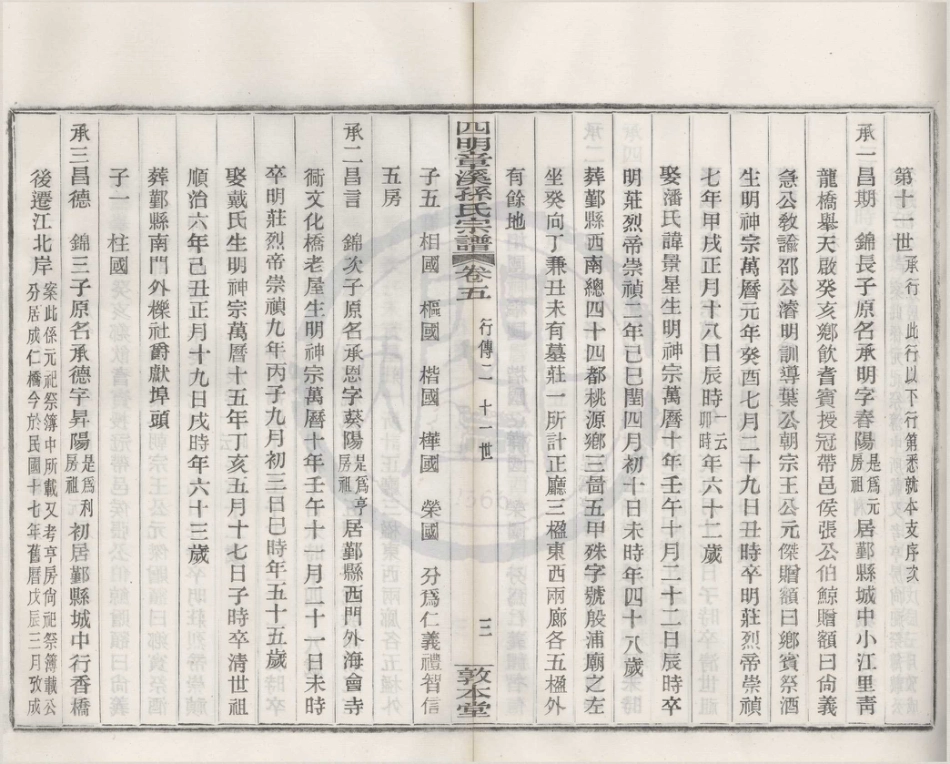 第十一世 承行 此行以下行第悉就本支序次
承一昌期 錦長子原名承明字春陽是爲元房祖居鄞縣城中小江里靑
龍橋舉天啟癸亥鄕飮耆賓授冠帶邑侯張公伯鯨贈額曰尙義
急公敎諭邵公濬明訓導葉公朝宗王公元傑贈額曰鄕賓祭酒
生明神宗萬曆元年癸酉七月二十九日丑時卒明莊烈帝崇禎
七年甲戌正月十八日辰時一云卯時年六十二歲
娶潘氏諱景星生明神宗萬曆十年壬午十月二十二日辰時卒
明莊烈帝崇禎二年己巳閏四月初十日未時年四十八歲
葬鄞縣西南總四十四都桃源鄕三啚五甲殊字號殷浦廟之左
坐癸向丁兼丑未有墓莊一所計正廳三楹東西兩廊各五楹外
有餘地
子五 相國 樞國 楷國 樺國 榮國 分爲仁義禮智信
五房
四明章溪孫氏宗譜 卷五 行傳二 十一世 三 敦本堂
承二昌言 錦次子原名承恩字葵陽是爲亨房祖居鄞縣西門外海會寺
衕文化橋老屋生明神宗萬曆十年壬午十一月二十一日未時
卒明莊烈帝崇禎九年丙子九月初三日巳時年五十五歲
娶戴氏生明神宗萬曆十五年丁亥五月十七日子時卒淸世祖
順治六年己丑正月十九日戌時年六十三歲
葬鄞縣南門外櫟社爵獻埠頭
子一 柱國
承三昌德 錦三子原名承德字昇陽是爲利房祖初居鄞縣城中行香橋
後遷江北岸案此係元祀祭簿中所載又考亨房尙祀祭簿載公分居成仁橋今於民國十七年舊曆戊辰三月攷成